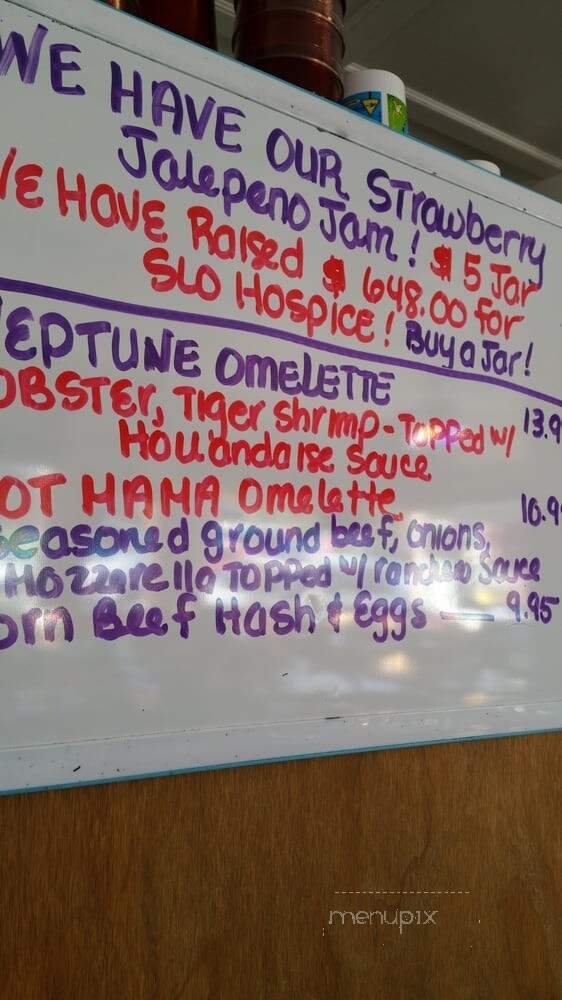 WE HAVE OUR Strawberry
Jalepeno Jam! $5 Jar
VE HAVE Raised $648.00 for
SLO HOSPICE! Buy a Jar!
NEPTUNE OMELETTE 13.9
OBSTEr, Tiger Shrimp - Topped w/
Hollandaise Sauce
OT MAMA Omelette 10.9
Seasoned ground beef, onions,
Mozzarella Topped w/ ranchero Sauce
orn Beef Hash & Eggs — 9.95
menupix